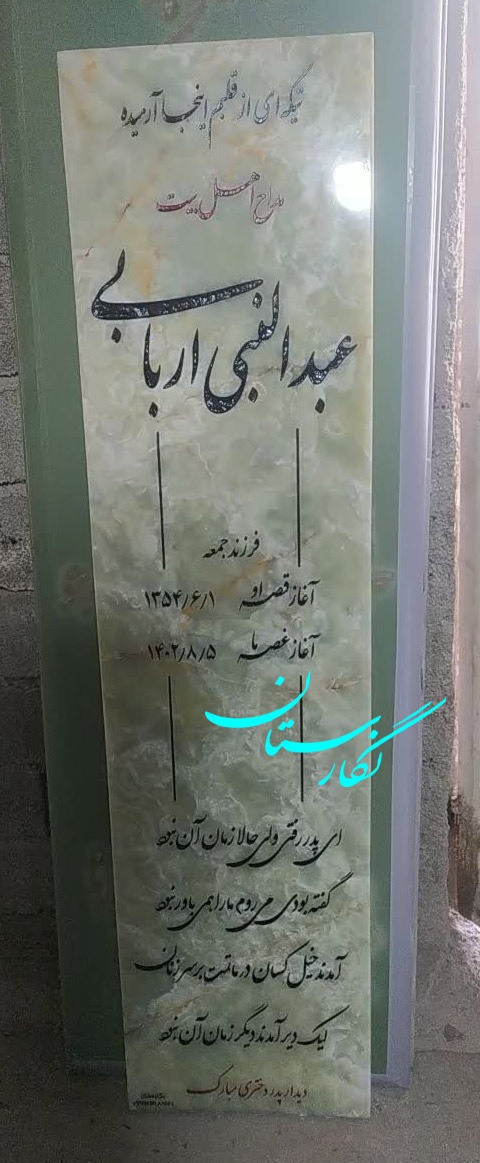 تیکه ای از قلبم اینجا آرمیده
مداح اهل بیت
عبدالنبی اربابی
فرزند جمعه
آغاز قصه او ۱۳۵۴/۶/۱
آغاز غصه ما ۱۴۰۲/۸/۵
نگارستان
ای پدر رفتی ولی حالا زمان آن نبود
گفته بودی می روم ما را همی باور نبود
آمدند خیل کسان در ماتمت بر سر زنان
لیک دیر آمدند دیگر زمان آن نبود
دیدار پدر دختری مبارک